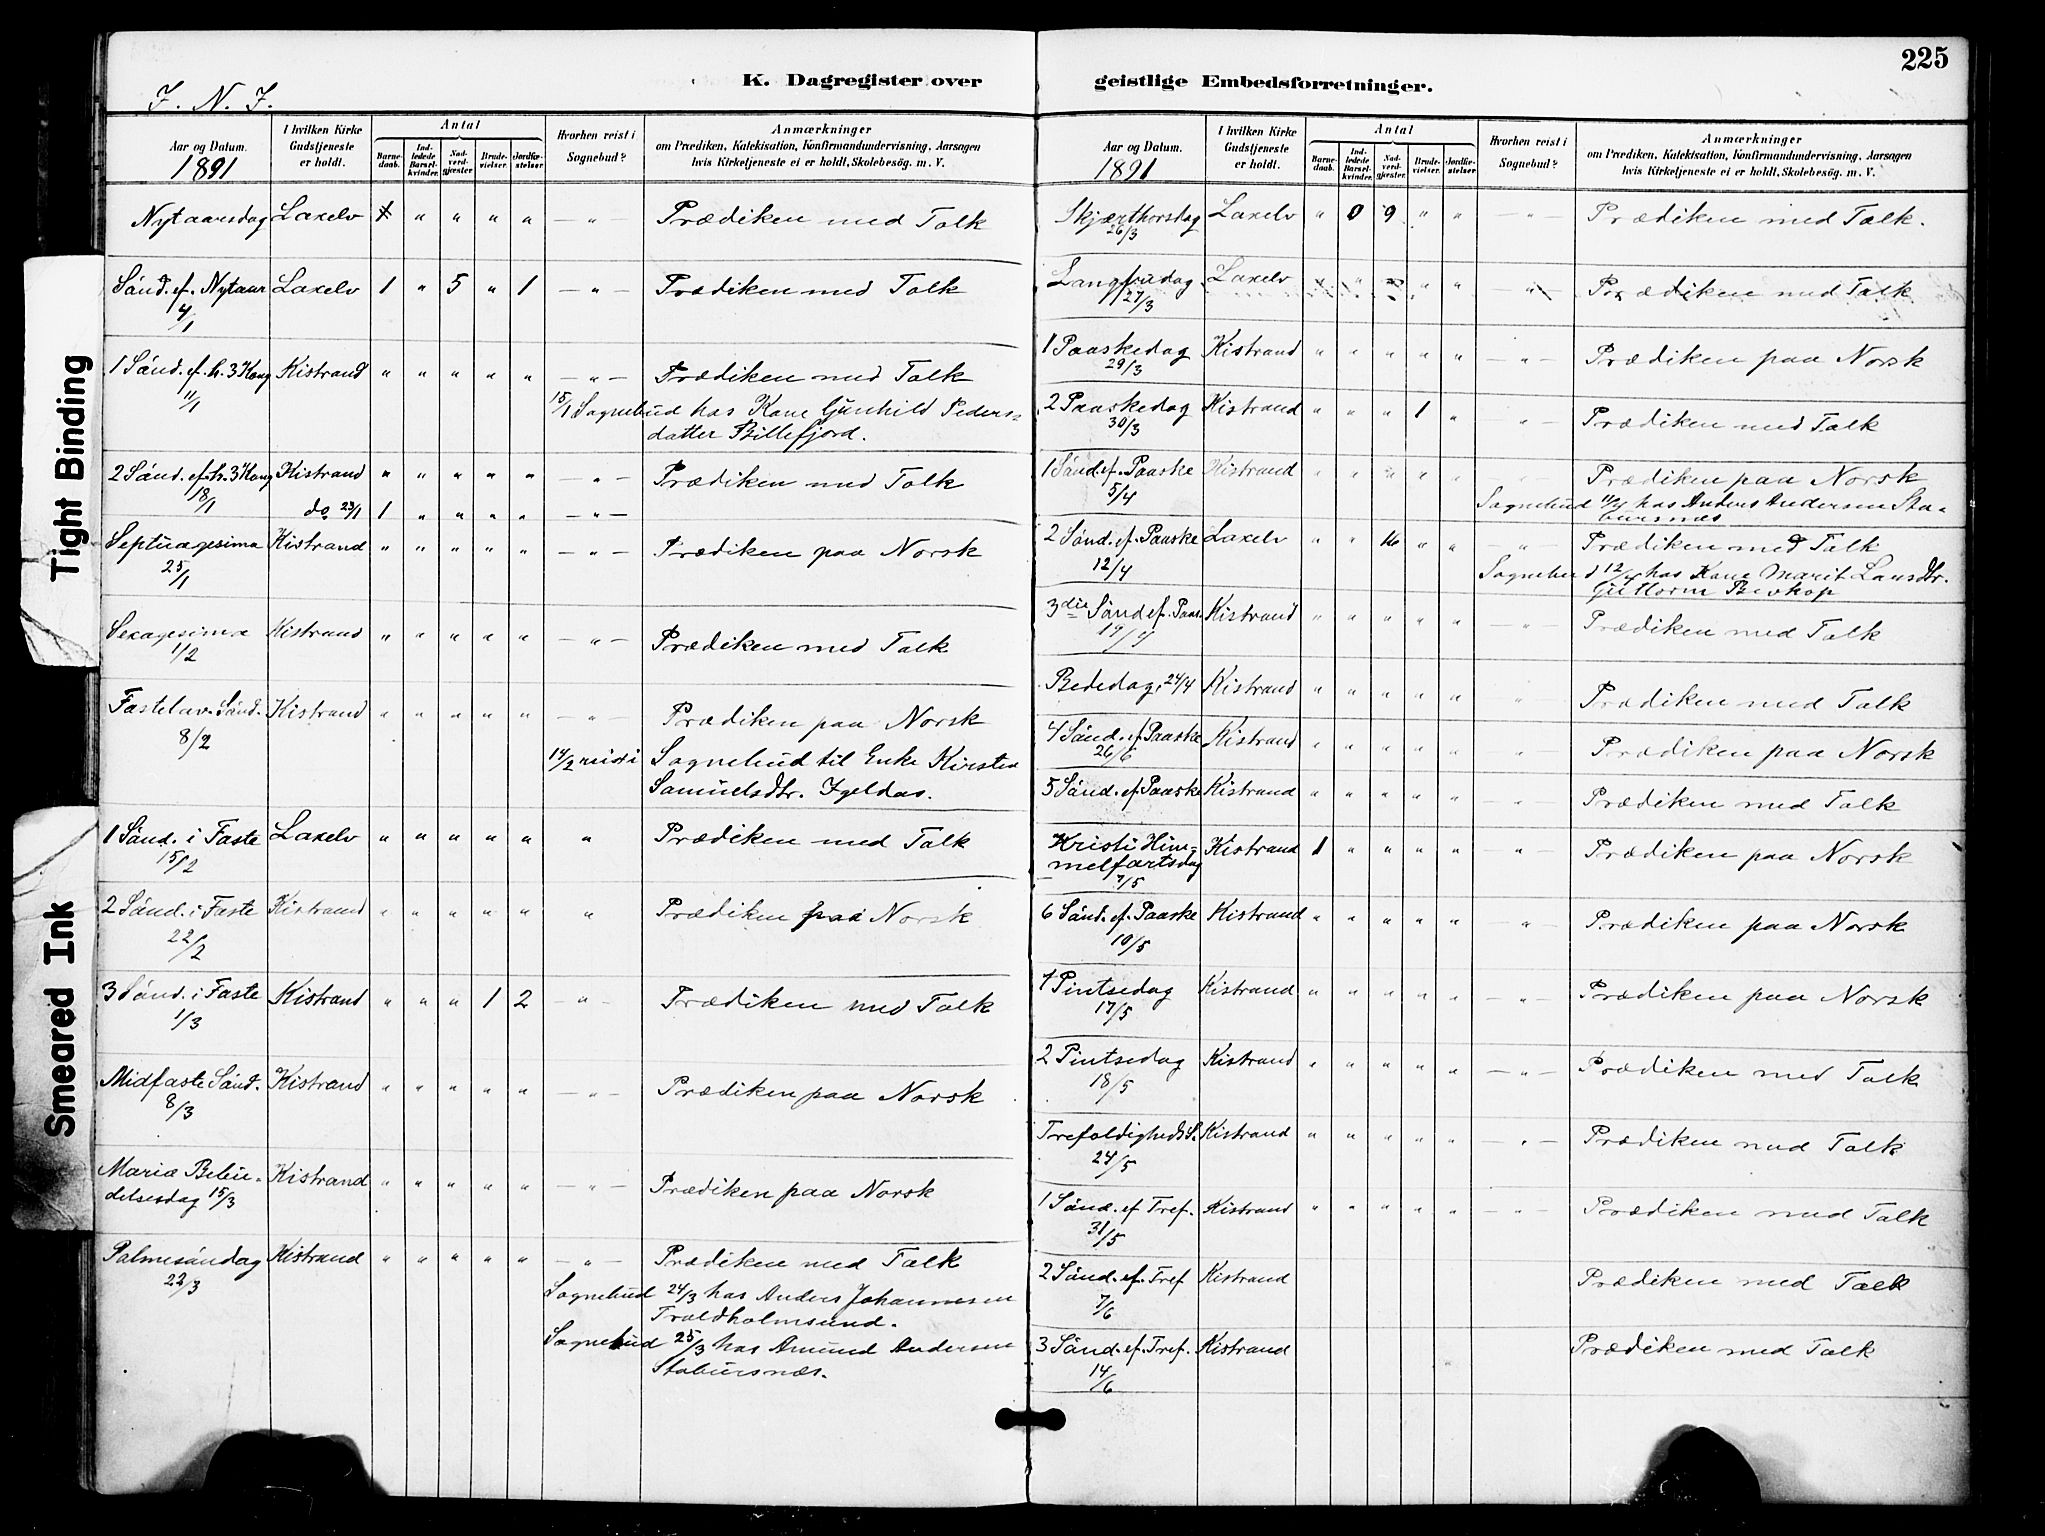 225
K. Dagregister over geistlige Embedsforretninger.
J. N. J.
Aar og Datum. 1891
I hvilken Kirke Gudstjeneste er holdt.
Antal
Barnedaab.
Indledede Barselkvinder.
Nadverdgjæster.
Brudevielser.
Jordfæstelser.
Hvorhen reist i Sognebud?
Anmærkninger
om Prædiken, Katekisation, Konfirmandundervisning, Aarsagen
hvis Kirketjeneste ei er holdt, Skolebesøg. m. V.
Nytaarsdag Laxelv " " " " — " — Prædiken med Tolk
Sönd. ef. Nytaar 4/1 Laxelv 1 " 5 " 1 — " — Prædiken med Tolk
1 Sönd. ef. h. 3 Kong 11/1 Kistrand " " " " " — " — Prædiken med Tolk
15/1 Sognebud hos Kone Gunhild Peders-
datter Billefjord.
2 Sönd. ef. h. 3 Kong 18/1 Kistrand " " " " " — " — Prædiken med Tolk
do 23/1 1 " " " " — " —
Septuagesima 25/1 Kistrand " " " " " — " — Prædiken paa Norsk
Sexagesima 1/2 Kistrand " " " " " — " — Prædiken med Tolk
Fastelav. Sönd. 8/2 Kistrand " " " " " — " — Prædiken paa Norsk
14/2 reist i Sognebud til Enke Kirsten
Samuelsdtr. Igeldas.
1 Sönd. i Faste 15/2 Laxelv " " " " " " Prædiken med Tolk
2 Sönd. i Faste 22/2 Kistrand " " " " " " Prædiken paa Norsk
3 Sönd. i Faste 1/3 Kistrand " " " 1 2 — " — Prædiken med Tolk
Midfaste Sönd. 8/3 Kistrand " " " " " — " — Prædiken paa Norsk
Mariæ Bebu-
delsesdag 15/3 Kistrand " " " " " — " — Prædiken paa Norsk
Palmesöndag 22/3 Kistrand " " " " " — " — Prædiken med Tolk
Sognebud 24/3 hos Anders Johannesen
Troldholmsund.
Sognebud 25/3 hos Amund Andersen
Stabursnæs.
Aar og Datum. 1891
I hvilken Kirke Gudstjeneste er holdt.
Antal
Barnedaab.
Indledede Barselkvinder.
Nadverdgjæster.
Brudevielser.
Jordfæstelser.
Hvorhen reist i Sognebud?
Anmærkninger
om Prædiken, Katekisation, Konfirmandundervisning, Aarsagen
hvis Kirketjeneste ei er holdt, Skolebesøg. m. V.
Skjærthorsdag 26/3 Laxelv " 0 9 " " — " — Prædiken med Tolk.
Langfredag 27/3 Laxelv " " " — " — Prædiken med Tolk
1 Paaskedag 29/3 Kistrand " " " " " — " — Prædiken paa Norsk
2 Paaskedag 30/3 Kistrand " " " 1 " " — Prædiken med Tolk
1 Sönd. ef. Paaske 5/4 Kistrand " " " " " — " — Prædiken paa Norsk
Sognebud 11/4 hos Anders Andersen Sta-
bursnæs
2 Sönd. ef. Paaske 12/4 Laxelv " " 16 " " — " — Prædiken med Tolk
Sognebud 12/4 hos Kone Marit Larsdtr.
Guttorm
3die Sönd ef. Paas. 19/4 Kistrand " " " " " — " — Prædiken med Tolk
Bededag, 24/4 Kistrand " " " " " " — Prædiken med Tolk
4 Sönd. ef Paaske 26/6 Kistrand " " " " " " Prædiken paa Norsk
5 Sönd. ef. Paaske Kistrand " " " " " — " — Prædiken med Tolk
Kristi Him-
melfartsdag 7/5 Kistrand 1 " " " " — " — Prædiken paa Norsk
6 Sönd. ef. Paaske 10/5 Kistrand " " " " " — " — Prædiken paa Norsk
1 Pintsedag 17/5 Kistrand " " " " " — " — Prædiken paa Norsk
2 Pintsedag 18/5 Kistrand " " " " " — " — Prædiken med Tolk
Trefoldigheds S. 24/5 Kistrand " " " " " — " — Prædiken med Tolk
1 Sönd. ef Tref. 31/5 Kistrand " " " " " — " — Prædiken med Tolk
2 Sönd. ef. Tref 7/6 Kistrand Prædiken med Tolk
3 Sönd. ef. Tref. 14/6 Kistrand Prædiken med Tolk
Tight Binding
Smeared Ink